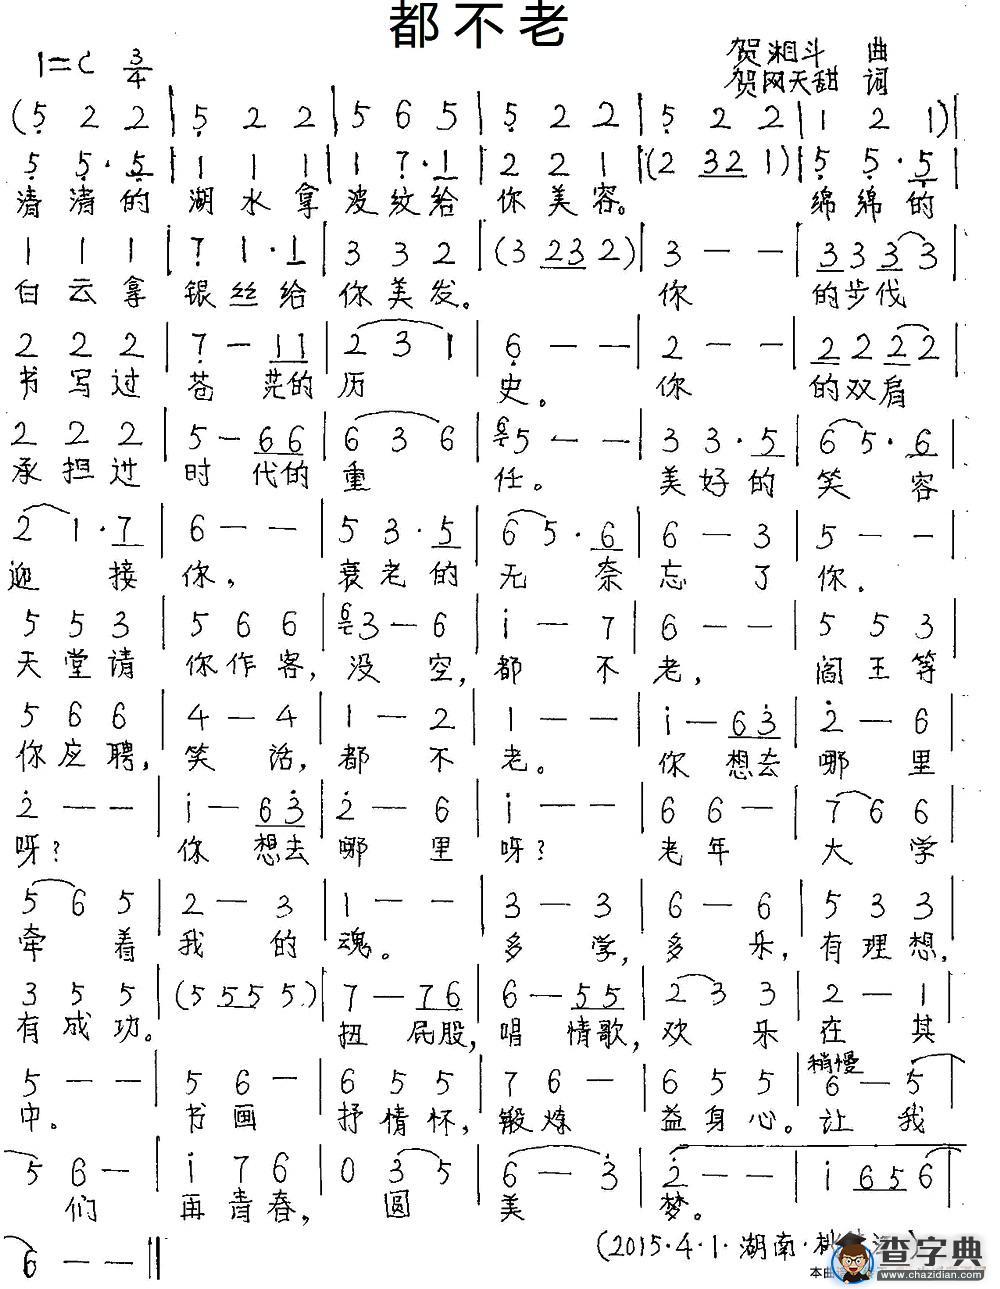 都不老
1=C 3/4
贺湘斗 曲
贺网天甜 词
(5̣ 2 2 | 5̣ 2 2 | 5 6 5 | 5̣ 2 2 | 5̣ 2 2 | 1 2 1) |
5̣ 5̣·5̣ | 1 1 1 | 1 7̣·1 | 2 2 1 | (2 32 1) | 5̣ 5̣·5̣ |
清清的 湖水拿 波纹给 你美容。 绵绵的
1 1 1 | 7̣ 1·1 | 3 3 2 | (3 232) | 3 — — | 3 3 3 3 |
白云拿 银丝给 你美发。 你 的步伐
2 2 2 | 7̣ — 11 | 2 3 1 | 6̣ — — | 2 — — | 2 2 2 2 |
书写过 苍茫的 历 史。 你 的双肩
2 2 2 | 5 — 66 | 6 3 6 | 6 5 — — | 3 3·5 | 6 5·6 |
承担过 时代的 重 任。 美好的 笑容
2 1·7 | 6 — — | 5 3·5 | 6 5·6 | 6 — 3 | 5 — — |
迎接 你, 衰老的 无奈 忘了 你.
5 5 3 | 5 6 6 | 6 3 — 6 | i — 7 | 6 — — | 5 5 3 |
天堂请 你作客, 没空, 都不 老, 阎王等
5 6 6 | 4 — 4 | 1 — 2 | 1 — — | i — 63̇ | 2̇ — 6 |
你应聘, 笑话, 都不 老。 你想去 哪里
2̇ — — | i — 63̇ | 2̇ — 6 | i — — | 6 6 — | 7 6 6 |
呀? 你想去 哪里 呀? 老年 大学
5 6 5 | 2 — 3 | 1 — — | 3 — 3 | 6 — 6 | 5 3 3 |
牵着 我的 魂。 多学, 多乐, 有理想,
3 5 5 | (5 55 5.) | 7 — 76 | 6 — 55 | 2 3 3 | 2 — 1 |
有成功。 扭屁股, 唱情歌, 欢乐 在其
稍慢
5 — — | 5 6 — | 6 5 5 | 7 6 — | 6 5 5 | 6 — 5 |
中。 书画 抒情怀, 锻炼 益身心。 让我
5 6 — | i 7 6 | 0 3 5 | 6 — 3̇ | 2̇ — — | i 656 |
们 再青春, 圆 美 梦。
6 — — ‖
(2015·4·1·湖南·
本曲
查字典
www.chazidian.com